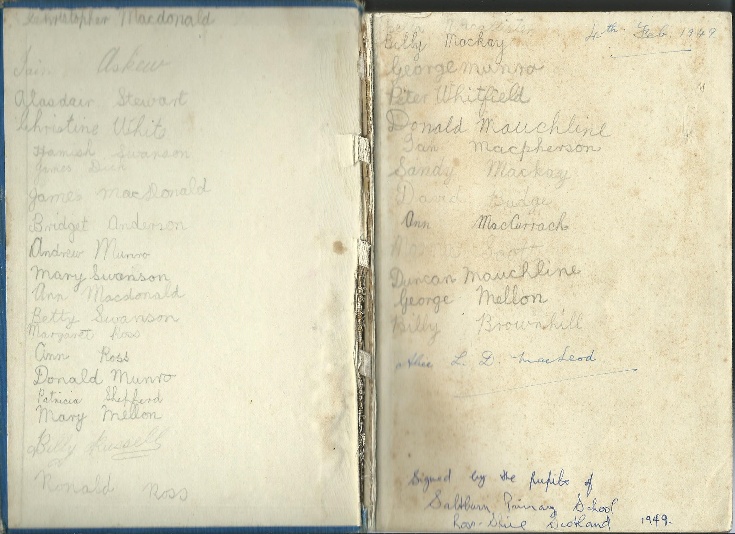 Christopher Macdonald
Iain Askew
Alasdair Stewart
Christine Whit
Hamish Swanson
James Dick
James MacDonald
Bridget Anderson
Andrew Munro
Mary Swanson
Ann Macdonald
Betty Swanson
Margaret Ross
Ann Ross
Donald Munro
Patricia Shepherd
Mary Mellon
Billy Russell
Ronald Ross
4th Feb. 1949
Billy Mackay
George Munro
Peter Whitfield
Donald Mauchline
Ian Macpherson
Sandy Mackay
David Budge
Ann MacCurrach
Scott
Duncan Mauchline
George Mellon
Billy Brownhill
L. D. MacLeod
Signed by the pupils of
Saltburn Primary School
Ross-Shire Scotland 1949.